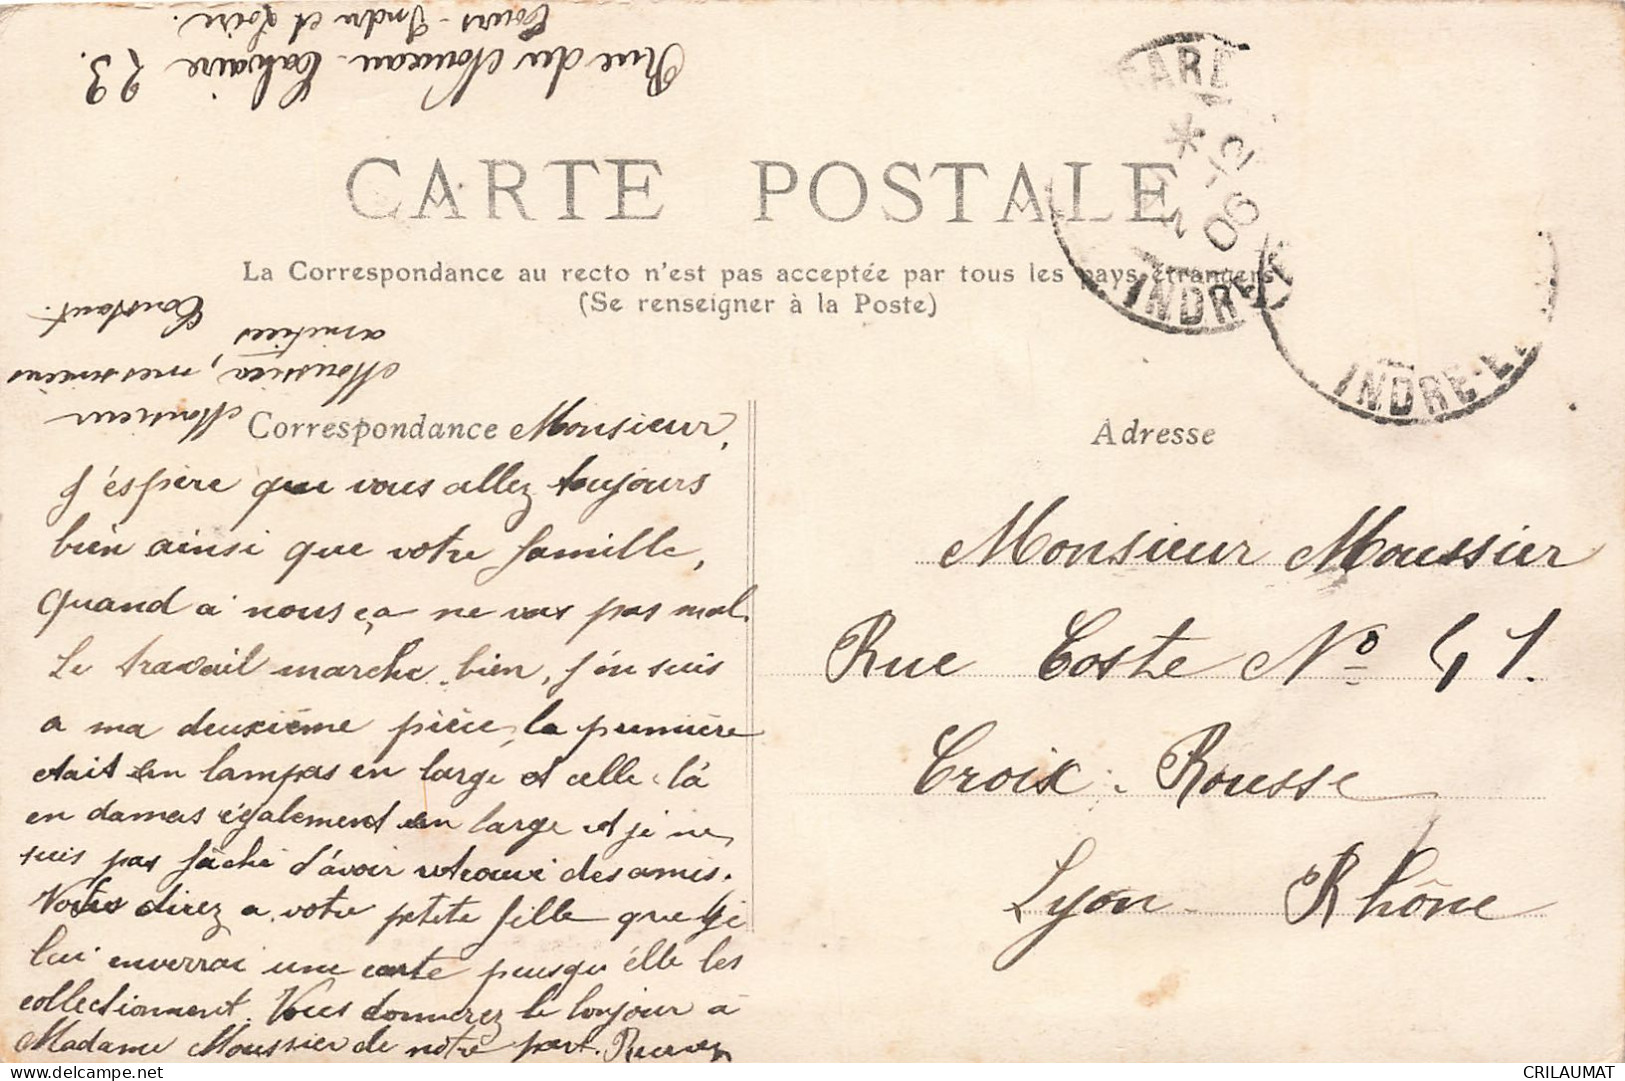 Rue du Nouveau Calvaire 23.
Tours - Indre et Loire.
GARE
06
INDRE-ET-L
INDRE-ET-L
CARTE POSTALE
La Correspondance au recto n'est pas acceptée par tous les pays étrangers
(Se renseigner à la Poste)
Correspondance
Adresse
Monsieur,
J'éspère que vous allez toujours
bien ainsi que votre famille,
quand a nous ça ne vas pas mal.
Le travail marche bien, j'en suis
a ma deuxième pièce, la première
etait en lampas en large et celle là
en damas également en large et je ne
suis pas fâché d'avoir retrouvé des amis.
Vous direz a votre petite fille que je
lui enverrai une carte puisqu'élle les
collectionnent. Vous donnerez le bonjour a
Madame Moussier de notre part. Recevez
Monsieur
Moussier, mes meilleures
amitiées
Constant.
Monsieur Moussier
Rue Coste No 41.
Croix-Rousse
Lyon - Rhône
delcampe.net
CRILAUMAT